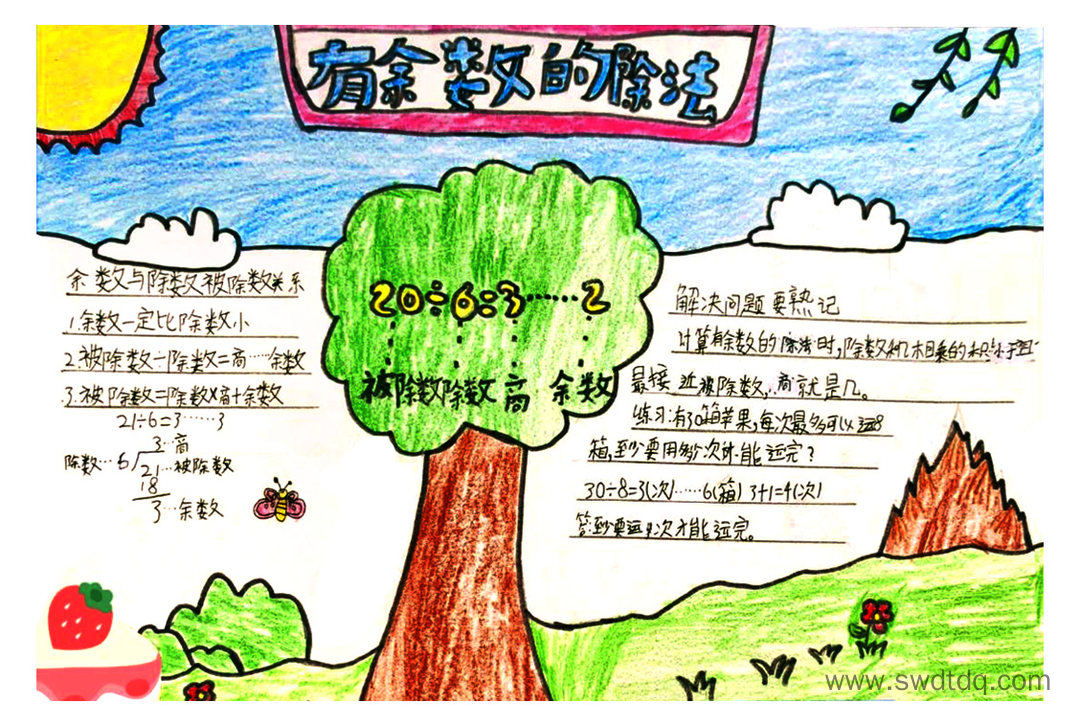 有余数的除法
20÷6=3……2
被除数 除数 高 余数
余数与除数被除数关系
1.余数一定比除数小
2.被除数÷除数=高……余数
3.被除数=除数×高+余数
21÷6=3……3
3…高
除数…6 21…被除数
18
3…余数
解决问题要熟记
计算有余数的除法时,除数和几相乘的积
最接近被除数,商就是几。
练习:有30箱苹果,每次最多可以运8
箱,至少要用多少次才能运完?
30÷8=3(次)……6(箱) 3+1=4(次)
答:至少要运4次才能运完。
www.swdtdq.com